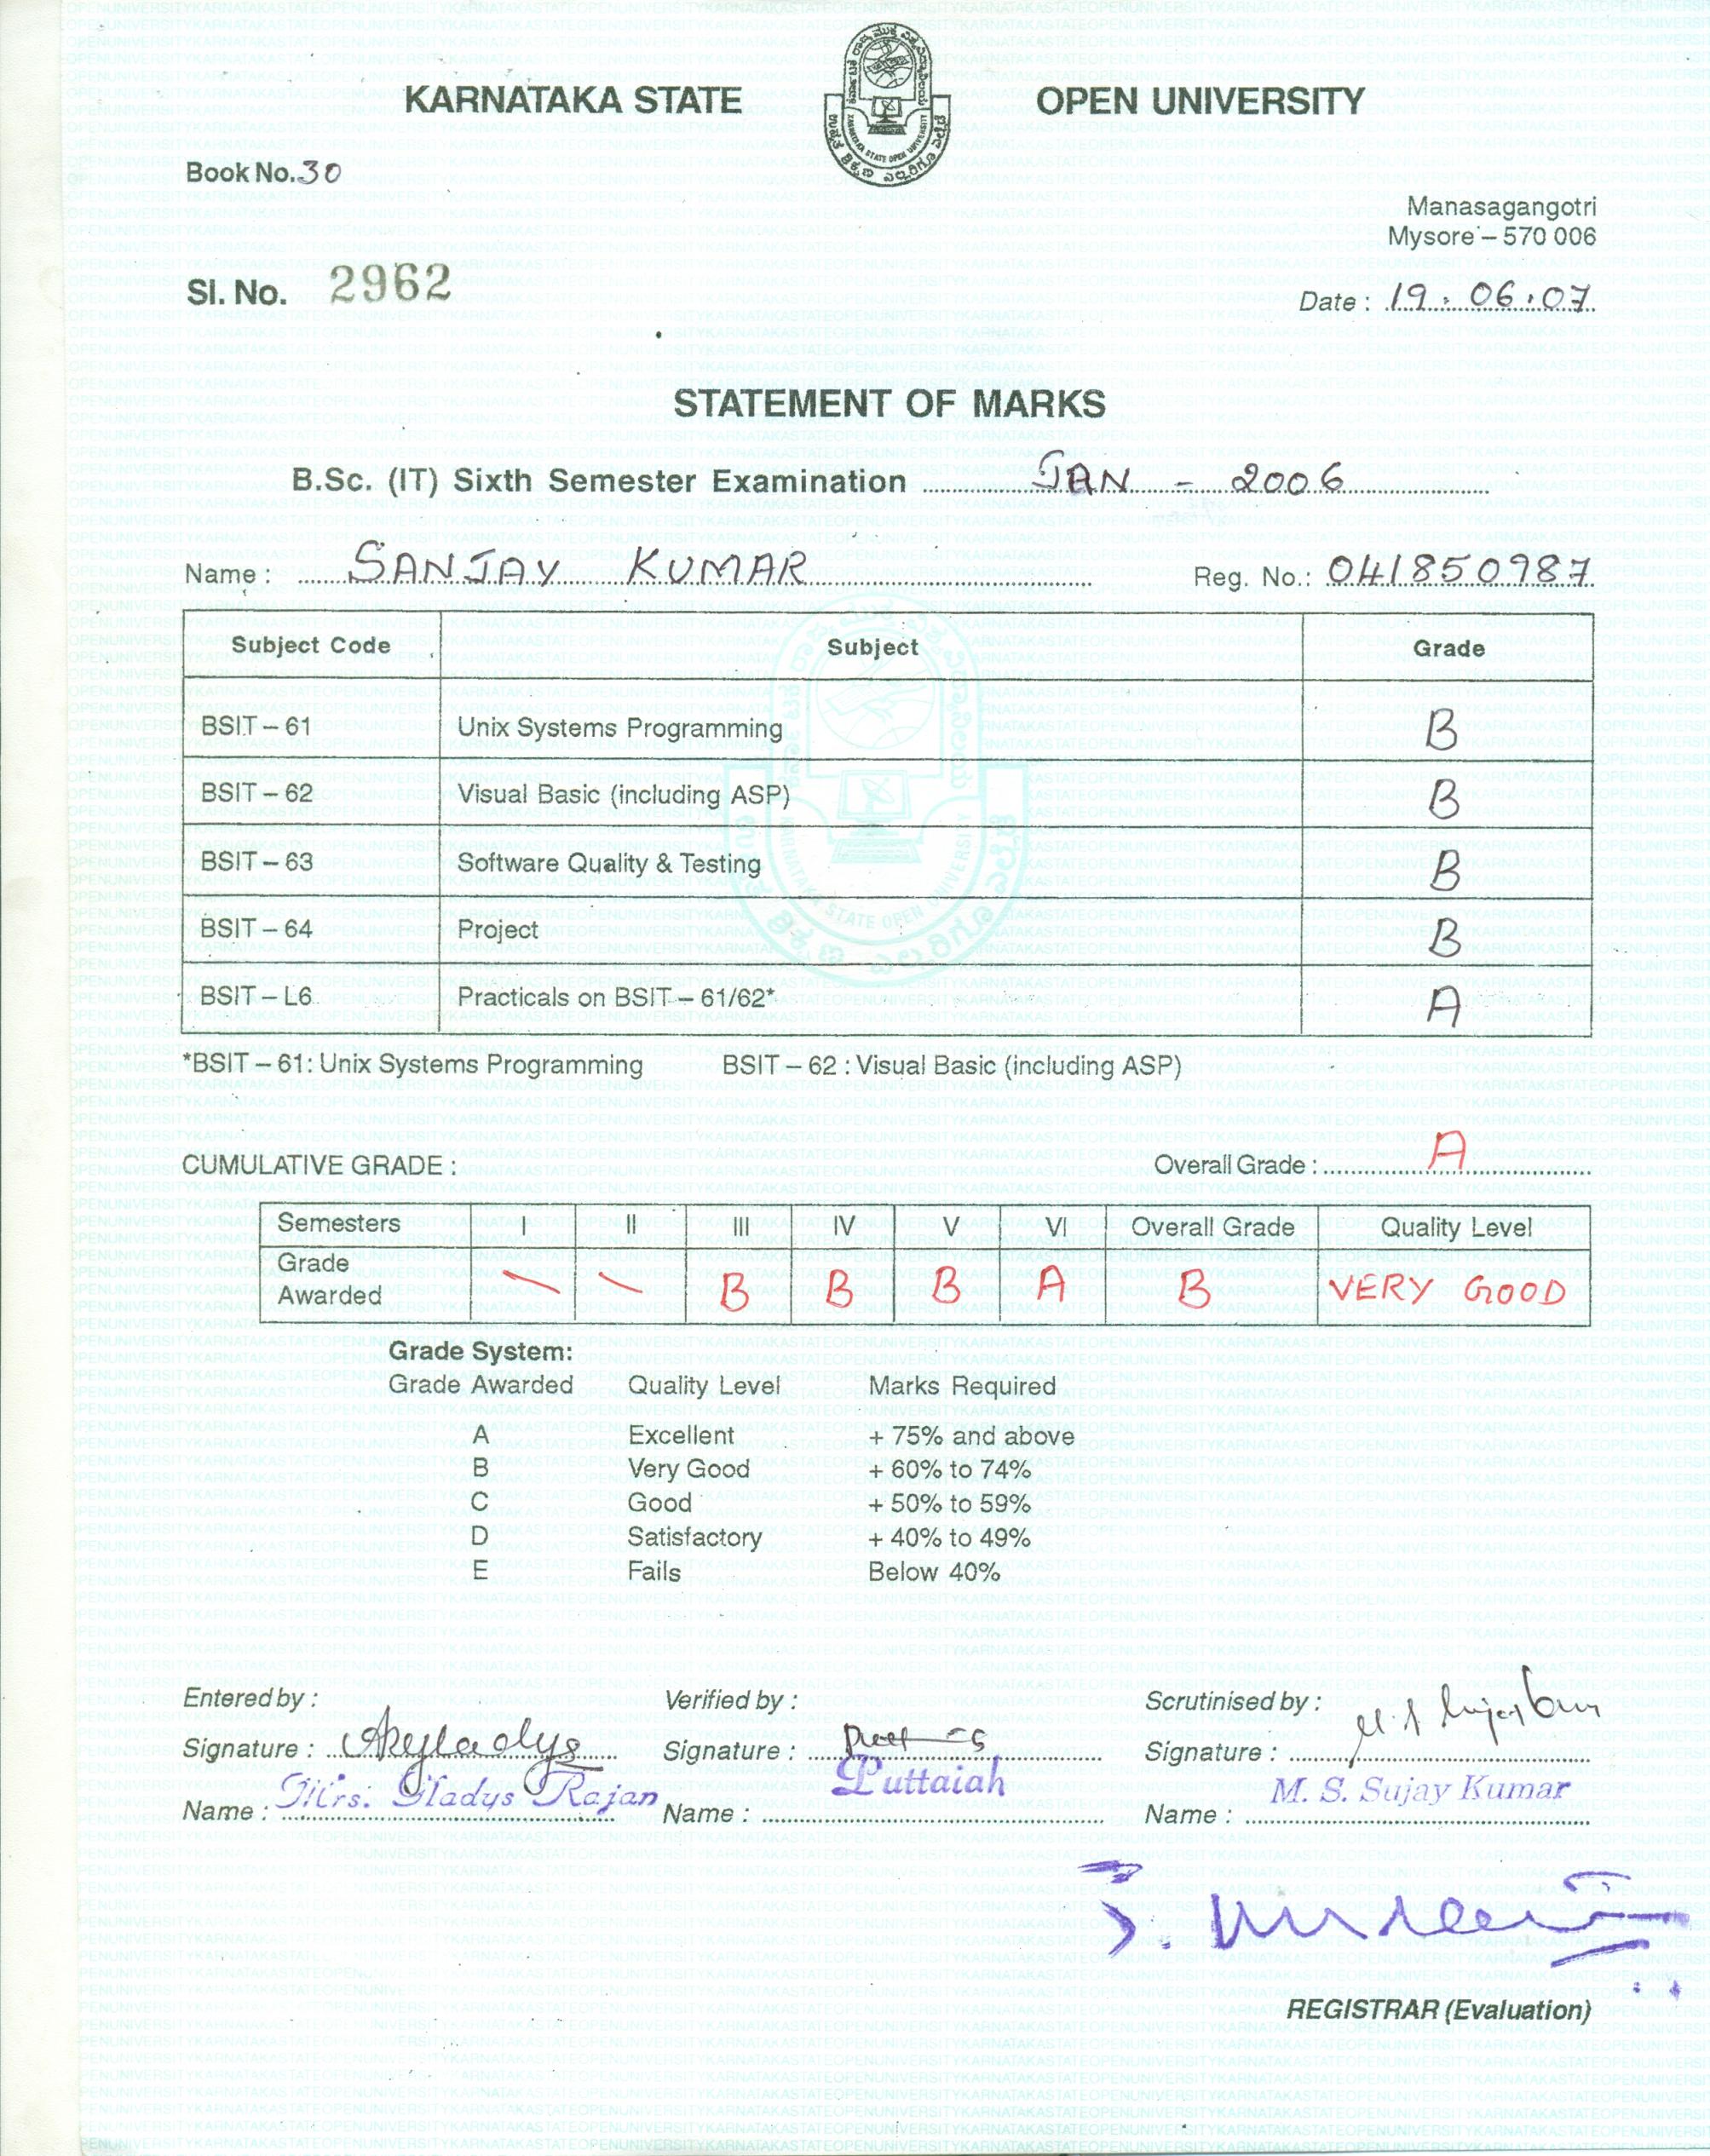 KARNATAKA STATE OPEN UNIVERSITY
Book No. 30
Manasagangotri
Mysore – 570 006
Sl. No. 2962
Date : 19.06.07
STATEMENT OF MARKS
B.Sc. (IT) Sixth Semester Examination JAN - 2006
Name : SANJAY KUMAR Reg. No.: 041850987
Subject Code Subject Grade
BSIT – 61 Unix Systems Programming B
BSIT – 62 Visual Basic (including ASP) B
BSIT – 63 Software Quality & Testing B
BSIT – 64 Project B
BSIT – L6 Practicals on BSIT – 61/62* A
*BSIT – 61: Unix Systems Programming BSIT – 62 : Visual Basic (including ASP)
CUMULATIVE GRADE : Overall Grade : A
Semesters I II III IV V VI Overall Grade Quality Level
Grade
Awarded \ \ B B B A B VERY GOOD
Grade System:
Grade Awarded Quality Level Marks Required
A Excellent + 75% and above
B Very Good + 60% to 74%
C Good + 50% to 59%
D Satisfactory + 40% to 49%
E Fails Below 40%
Entered by : Verified by : Scrutinised by :
Signature : Signature : Signature :
Name : Mrs. Gladys Rajan Name : Puttaiah Name : M. S. Sujay Kumar
REGISTRAR (Evaluation)